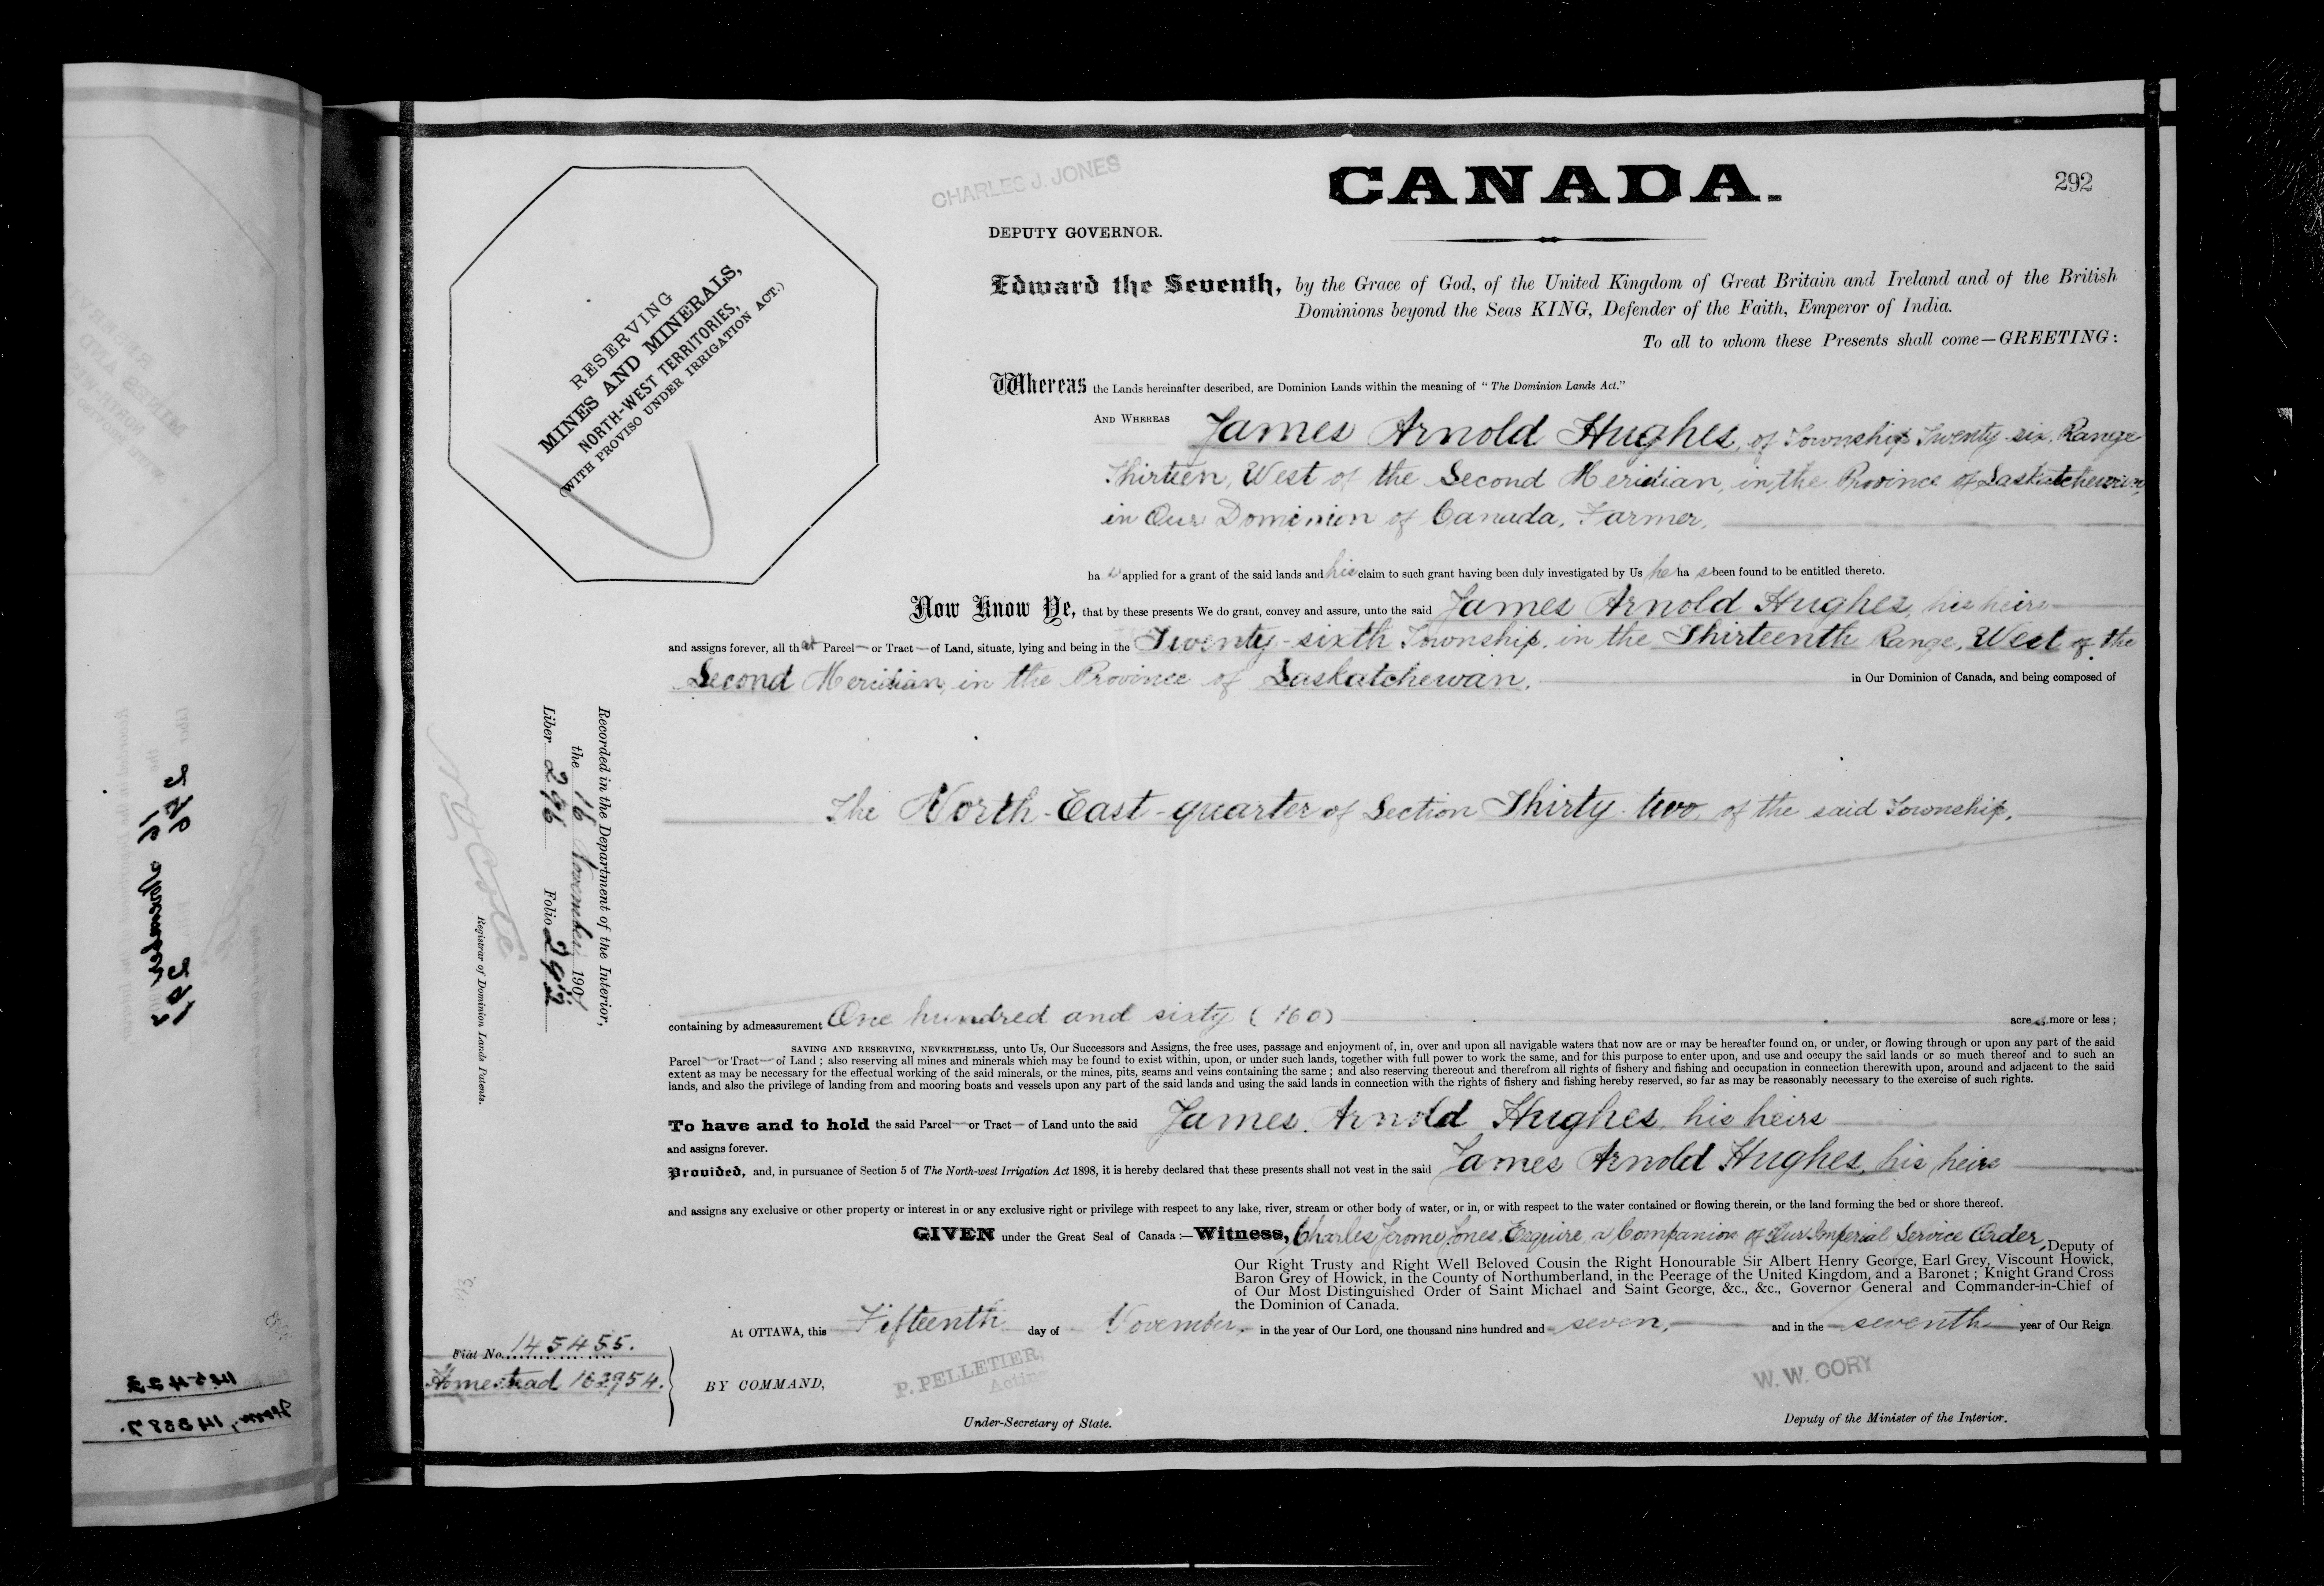 CHARLES J. JONES
CANADA.
292
DEPUTY GOVERNOR.
Edward the Seventh, by the Grace of God, of the United Kingdom of Great Britain and Ireland and of the British
Dominions beyond the Seas KING, Defender of the Faith, Emperor of India.
To all to whom these Presents shall come—GREETING:
RESERVING
MINES AND MINERALS,
NORTH-WEST TERRITORIES,
(WITH PROVISO UNDER IRRIGATION ACT.)
Whereas the Lands hereinafter described, are Dominion Lands within the meaning of "The Dominion Lands Act."
AND WHEREAS James Arnold Hughes, of Township Twenty-six, Range
Thirteen, West of the Second Meridian, in the Province of Saskatchewan,
in Our Dominion of Canada, Farmer,
ha s applied for a grant of the said lands and his claim to such grant having been duly investigated by Us he ha s been found to be entitled thereto.
Now Know Ye, that by these presents We do grant, convey and assure, unto the said James Arnold Hughes, his heirs
and assigns forever, all that Parcel or Tract of Land, situate, lying and being in the Twenty-sixth Township, in the Thirteenth Range, West of the
Second Meridian, in the Province of Saskatchewan, in Our Dominion of Canada, and being composed of
The North-East-quarter of Section Thirty-two, of the said Township,
containing by admeasurement One hundred and sixty (160) acres, more or less;
SAVING AND RESERVING, NEVERTHELESS, unto Us, Our Successors and Assigns, the free uses, passage and enjoyment of, in, over and upon all navigable waters that now are or may be hereafter found on, or under, or flowing through or upon any part of the said
Parcel or Tract of Land; also reserving all mines and minerals which may be found to exist within, upon, or under such lands, together with full power to work the same, and for this purpose to enter upon, and use and occupy the said lands or so much thereof and to such an
extent as may be necessary for the effectual working of the said minerals, or the mines, pits, seams and veins containing the same; and also reserving thereout and therefrom all rights of fishery and fishing and occupation in connection therewith upon, around and adjacent to the said
lands, and also the privilege of landing from and mooring boats and vessels upon any part of the said lands and using the said lands in connection with the rights of fishery and fishing hereby reserved, so far as may be reasonably necessary to the exercise of such rights.
To have and to hold the said Parcel or Tract of Land unto the said James Arnold Hughes, his heirs
and assigns forever.
Provided, and, in pursuance of Section 5 of The North-west Irrigation Act 1898, it is hereby declared that these presents shall not vest in the said James Arnold Hughes, his heirs
and assigns any exclusive or other property or interest in or any exclusive right or privilege with respect to any lake, river, stream or other body of water, or in, or with respect to the water contained or flowing therein, or the land forming the bed or shore thereof.
GIVEN under the Great Seal of Canada:—Witness, Charles Jerome Jones, Esquire, a Companion of Our Imperial Service Order, Deputy of
Our Right Trusty and Right Well Beloved Cousin the Right Honourable Sir Albert Henry George, Earl Grey, Viscount Howick,
Baron Grey of Howick, in the County of Northumberland, in the Peerage of the United Kingdom, and a Baronet; Knight Grand Cross
of Our Most Distinguished Order of Saint Michael and Saint George, &c., &c., Governor General and Commander-in-Chief of
the Dominion of Canada.
At OTTAWA, this Fifteenth day of November, in the year of Our Lord, one thousand nine hundred and seven, and in the seventh year of Our Reign
BY COMMAND,
P. PELLETIER,
Acting
Under-Secretary of State.
W. W. CORY
Deputy of the Minister of the Interior.
Fiat No. 145455.
Homestead 163954.
Recorded in the Department of the Interior,
the 16 November 1907
Liber 296 Folio 292
N. O. Coté
Registrar of Dominion Lands Patents.